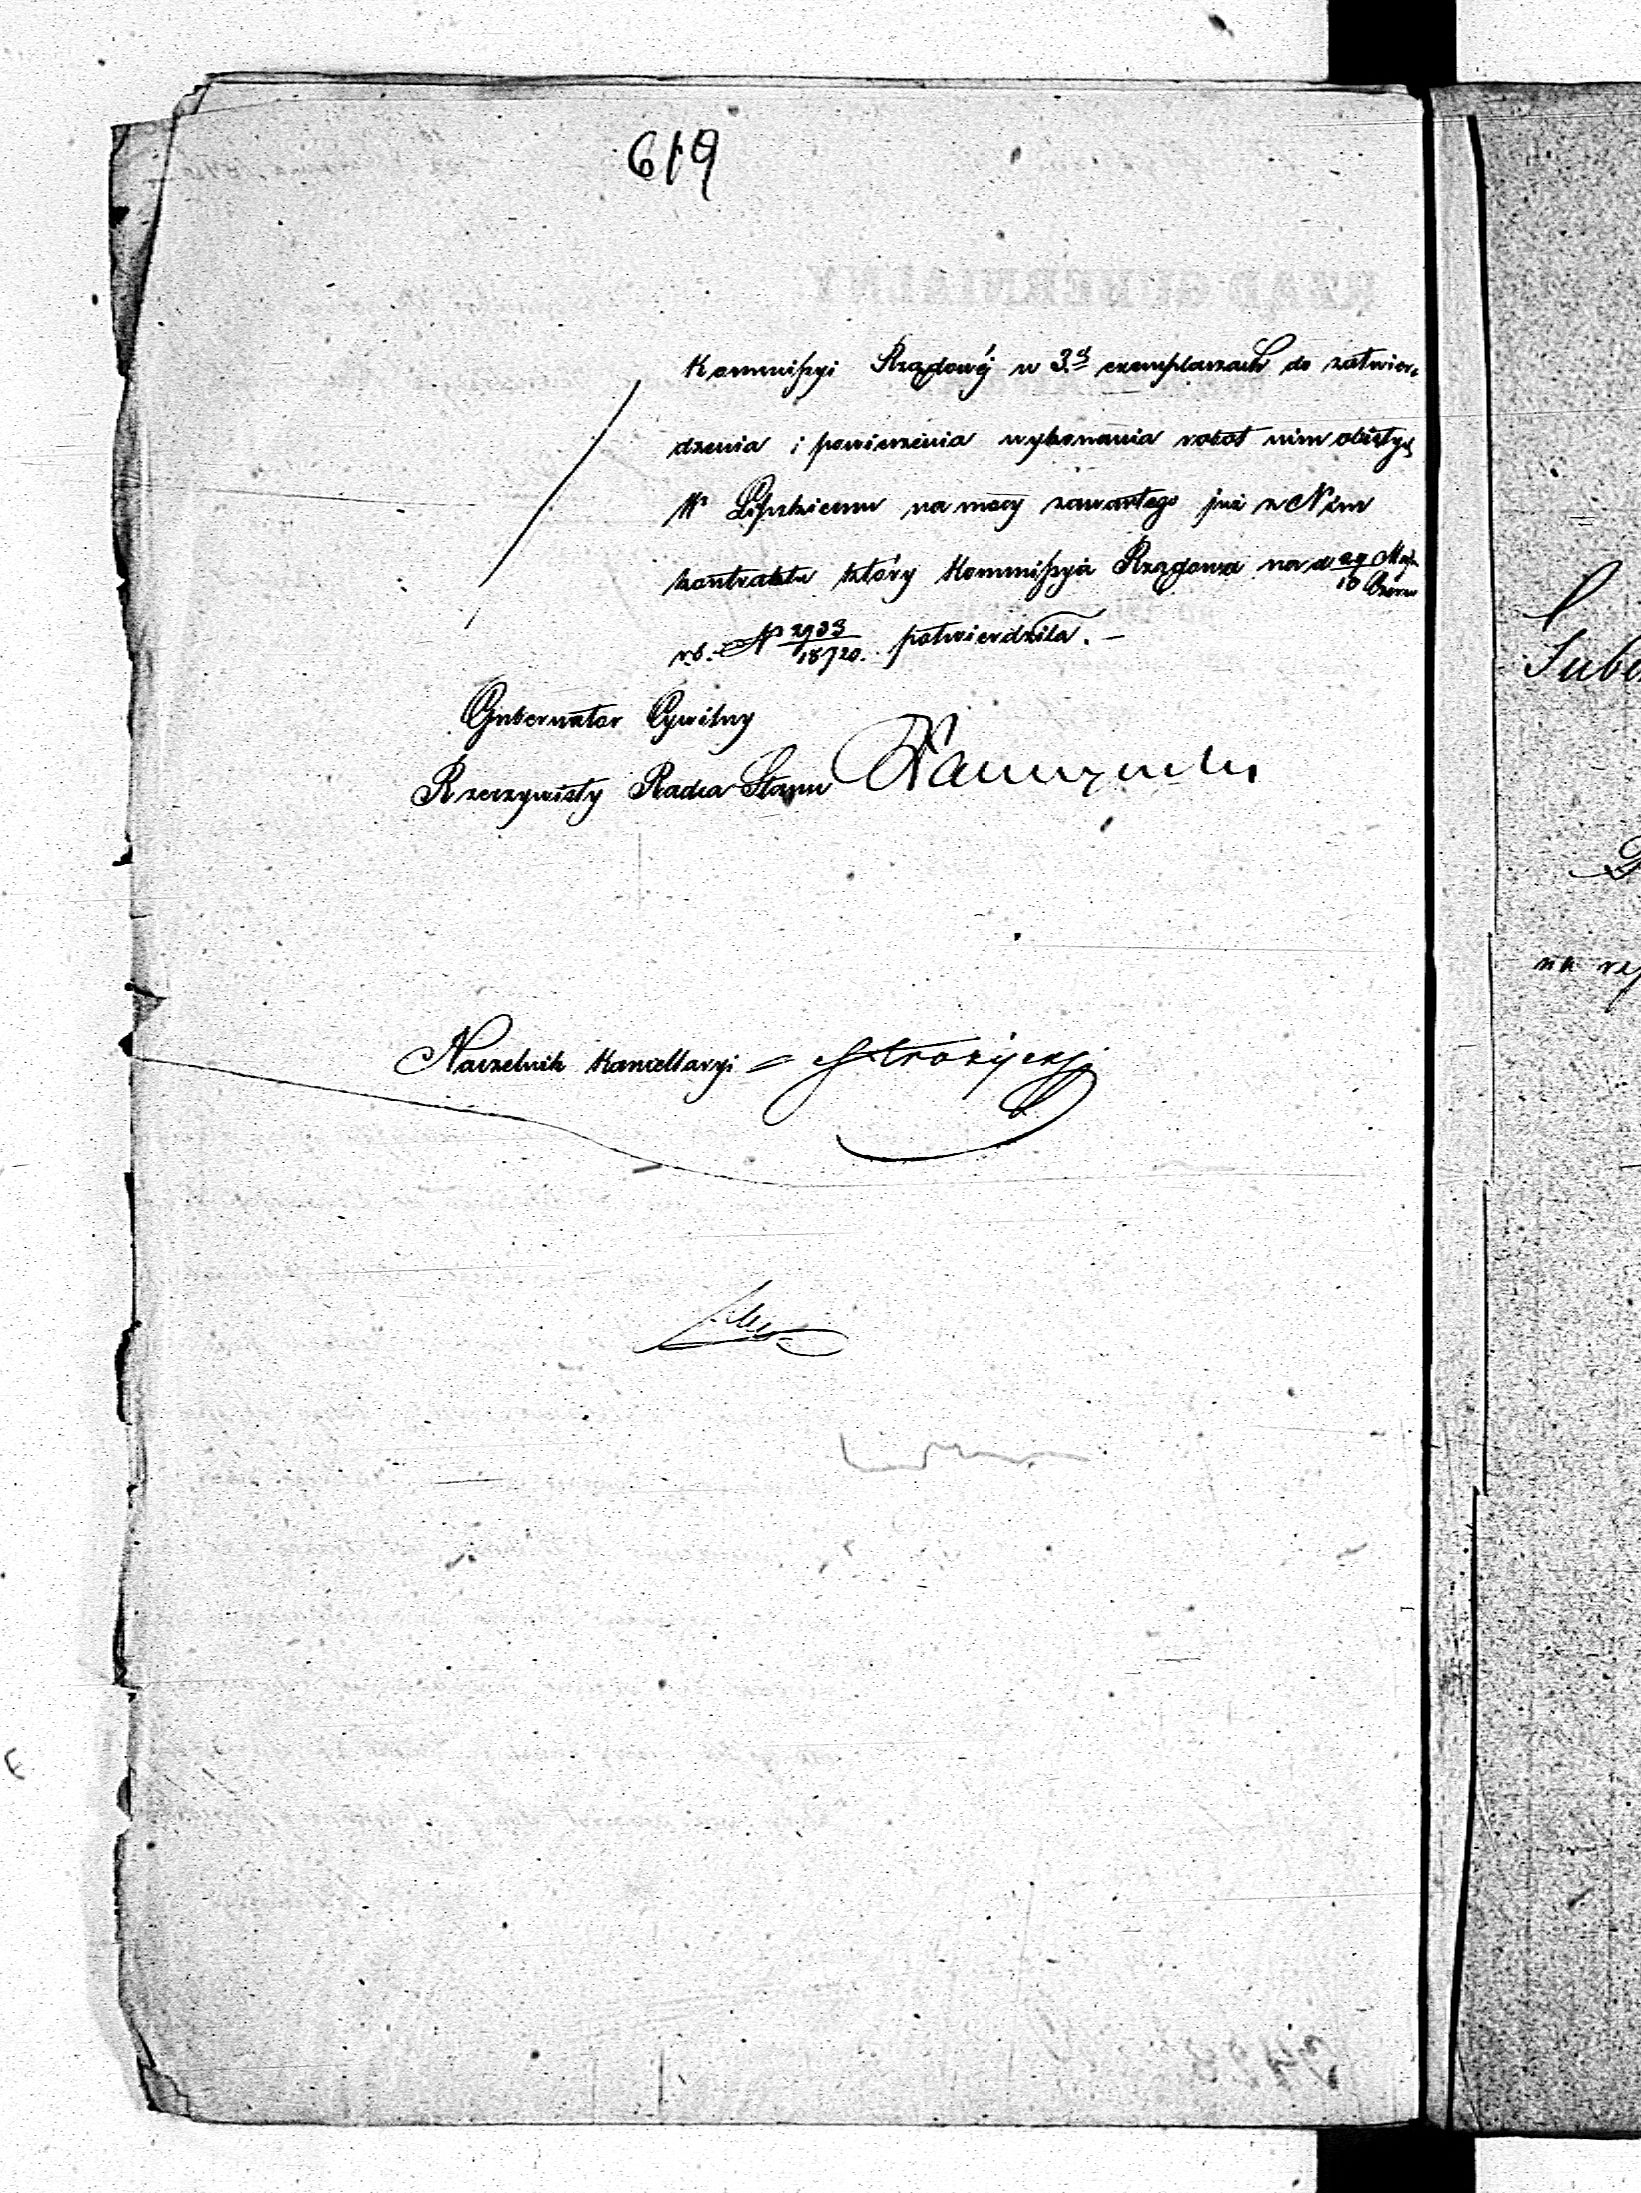 619
Kommissyi Rządowéj w 3ch exemplarzach do zatwier-
dzenia i powierzenia wykonania robot nim objętych
na mocy zawartego już z Nim
kontraktu który Kommissyia Rządowa na d 29 Maja/10 Czerw
r.b. N 2933/18720. potwierdziła. –
Gubernator Cywilny
Rzeczywisty Radca Stanu
Naczelnik Kancellaryi
na